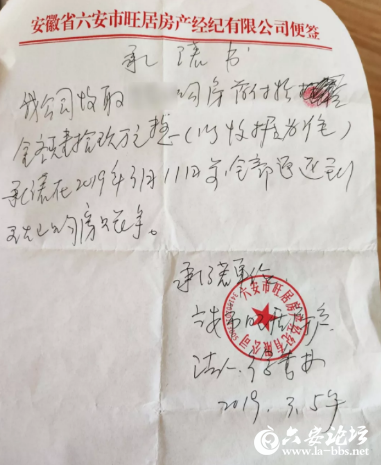 安徽省六安市旺居房产经纪有限公司便签
承诺书
我公司收取 购房首付款
全额壹拾玖万元整(以收据为准)
承诺在2019年3月11日前全部退还到
购房
承诺单位
六安市旺居房产
六安市旺居房产经纪有限公司
法人
2019.3.5号
六安论坛
www.la-bbs.net